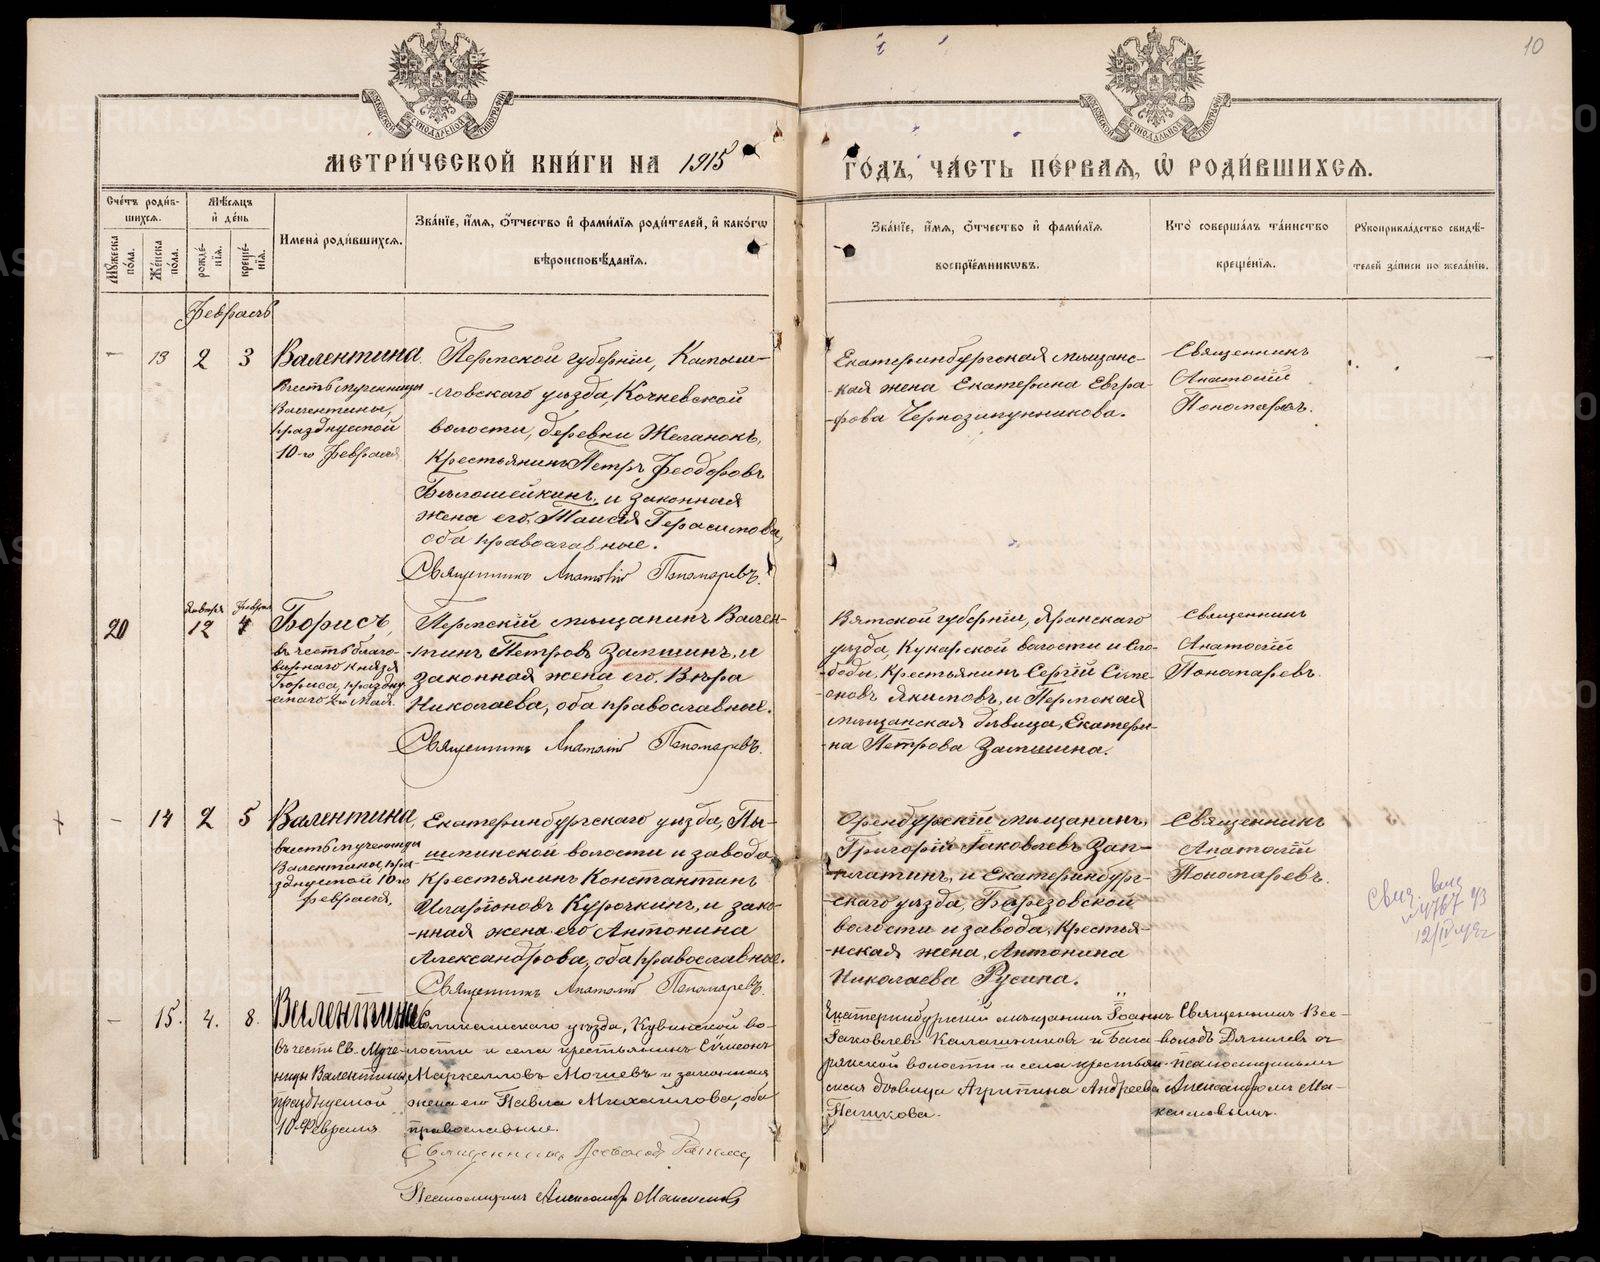 10
МЕТРИ́ЧЕСКОЙ КНИ́ГИ НА 1915 ГО́ДЪ, ЧА́СТЬ ПЕ́РВАЯ, Ѡ РОДИ́ВШИХСЯ.
Сче́тъ роди́вшихся.
Му́жеска по́ла.
Же́нска по́ла.
Мѣ́сяцъ и де́нь
рожде́нія.
креще́нія.
Имена́ роди́вшихся.
Зва́ніе, и́мя, о́тчество и фами́лія роди́телей, и како́гѡ
вѣроисповѣ́данія.
Зва́ніе, и́мя, о́тчество и фами́лія
воспріе́мникѡвъ.
Кто̀ соверша́лъ та́инство
креще́нія.
Рукоприкла́дство свидѣ́-
телей за́писи по жела́нію.
Февраль
— 13 2 3
Валентина,
въ честь мученницы
Валентины,
празднуемой
10-го Февраля
Пермской губернiи, Камыш-
-ловскаго уѣзда, Кочневской
волости, деревни Желанокъ,
крестьянинъ Петръ Ѳеодоровъ
Бѣлошейкинъ, и законная
жена его, Таисiя Герасимова,
оба православные.
Священникъ Анатолiй Пономаревъ.
Екатеринбургская мѣщанс-
-кая жена Екатерина Евгра-
-фова Чернозипунникова.
Священникъ
Анатолiй
Пономаревъ.
20
Января 12
Февраля 4
Борисъ,
въ честь благо-
вѣрнаго князя
Бориса, праздну-
емаго 2го Мая.
Пермскiй мѣщанинъ Вален-
-тинъ Петровъ Замшинъ, и
законная жена его, Вѣра
Николаева, оба православные.
Священникъ Анатолiй Пономаревъ.
Вятской губернiи, Яранскаго
уѣзда, Кукарской волости и Сло-
-боды, крестьянинъ Сергiй Сѵме-
-оновъ Якимовъ, и Пермская
мѣщанская дѣвица, Екатери-
-на Петрова Замшина.
Священникъ
Анатолiй
Пономаревъ.
— 14 2 5
Валентина,
въ честь мученицы
Валентины, пра-
зднуемой 10го
февраля,
Екатеринбургскаго уѣзда, Пы-
шминской волости и завода,
крестьянинъ Константинъ
Иларiоновъ Курочкинъ, и зако-
-нная жена его Антонина
Александрова, оба православные.
Священникъ Анатолiй Пономаревъ.
Оренбургскiй мѣщанинъ,
Григорiй Iаковлевъ Зап-
-платинъ, и Екатеринбург-
-скаго уѣзда, Березовской
волости и завода, крестья-
-нская жена, Антонина
Николаева Русина.
Священникъ
Анатолiй
Пономаревъ.
— 15. 4. 8.
Валентина
въ честь Св. Муче-
ницы Валентины
празднуемой
10 Февраля
Соликамскаго уѣзда, Кувинской во-
лости и села крестьянинъ Сѵмеонъ
Маркелловъ Мошевъ и законная
жена его Павла Михаилова, оба
православные.
Священникъ Всеволодъ
Псаломщикъ Александръ Максимовъ
Екатеринбургскiй мѣщанинъ Iоаннъ
Iаковлевъ Калашниковъ и Бага-
рякской волости и села крестьян-
ская дѣвица Агриппина Андреева
Пашкова.
Священникъ Все-
володъ
псаломщикомъ
Александромъ Ма-
ксимовымъ.